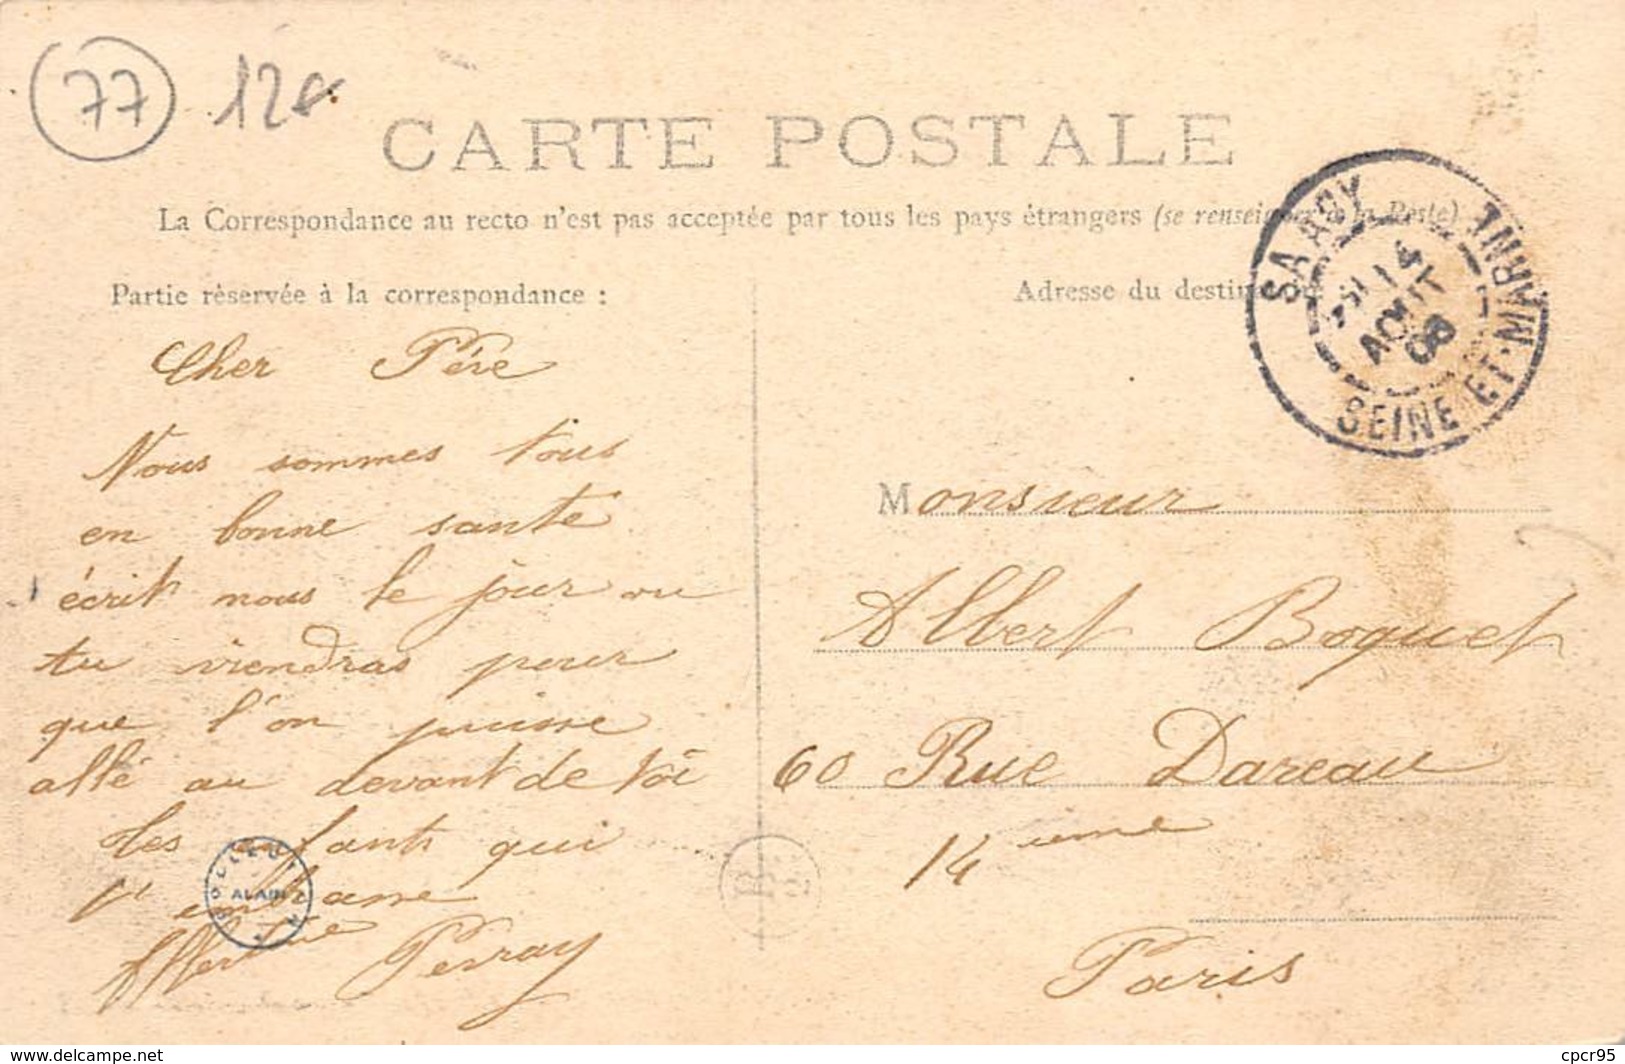 77 12€
CARTE POSTALE
La Correspondance au recto n'est pas acceptée par tous les pays étrangers (se renseigner à la Poste)
Partie rèservée à la correspondance :
Cher Père
Nous sommes tous
en bonne santé
écrit nous le jour ou
tu viendras pour
que l'on puisse
allé au devant de toi
tes enfants qui
t'embrasse
Perray
ALAIN
Adresse du destin
SAACY
14
AOUT
08
SEINE-ET-MARNE
Monsieur
Albert Boquet
60 Rue Dareau
14 ième
Paris
www.delcampe.net
cpcr95